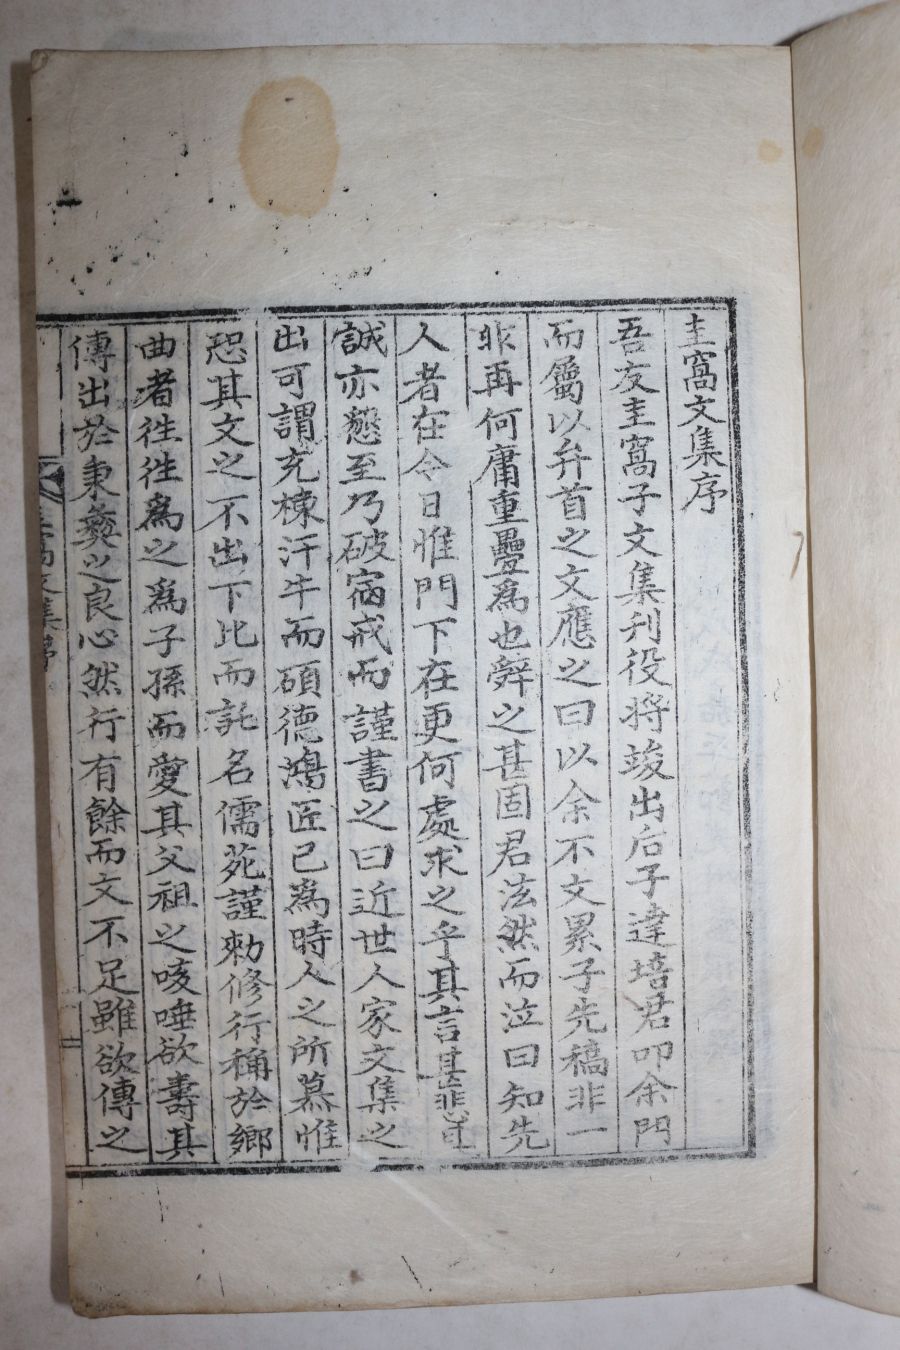 圭窩文集序
吾友圭窩子文集刊役將竣出后子達培君叩余門
而屬以弁首之文應之曰以余不文累子先稿非一
非再何庸重疊爲也辭之甚固君泫然而泣曰知先
人者在今日惟門下在更何處求之乎其言甚悲其
誠亦懇至乃破宿戒而謹書之曰近世人家文集之
出可謂充棟汗牛而碩德鴻匠已爲時人之所慕惟
恐其文之不出下此而託名儒苑謹勑修行稱於鄕
曲者徃徃爲之爲子孫而愛其父祖之咳唾欲壽其
傳出於秉彝之良心然行有餘而文不足雖欲傳之
圭窩文集序